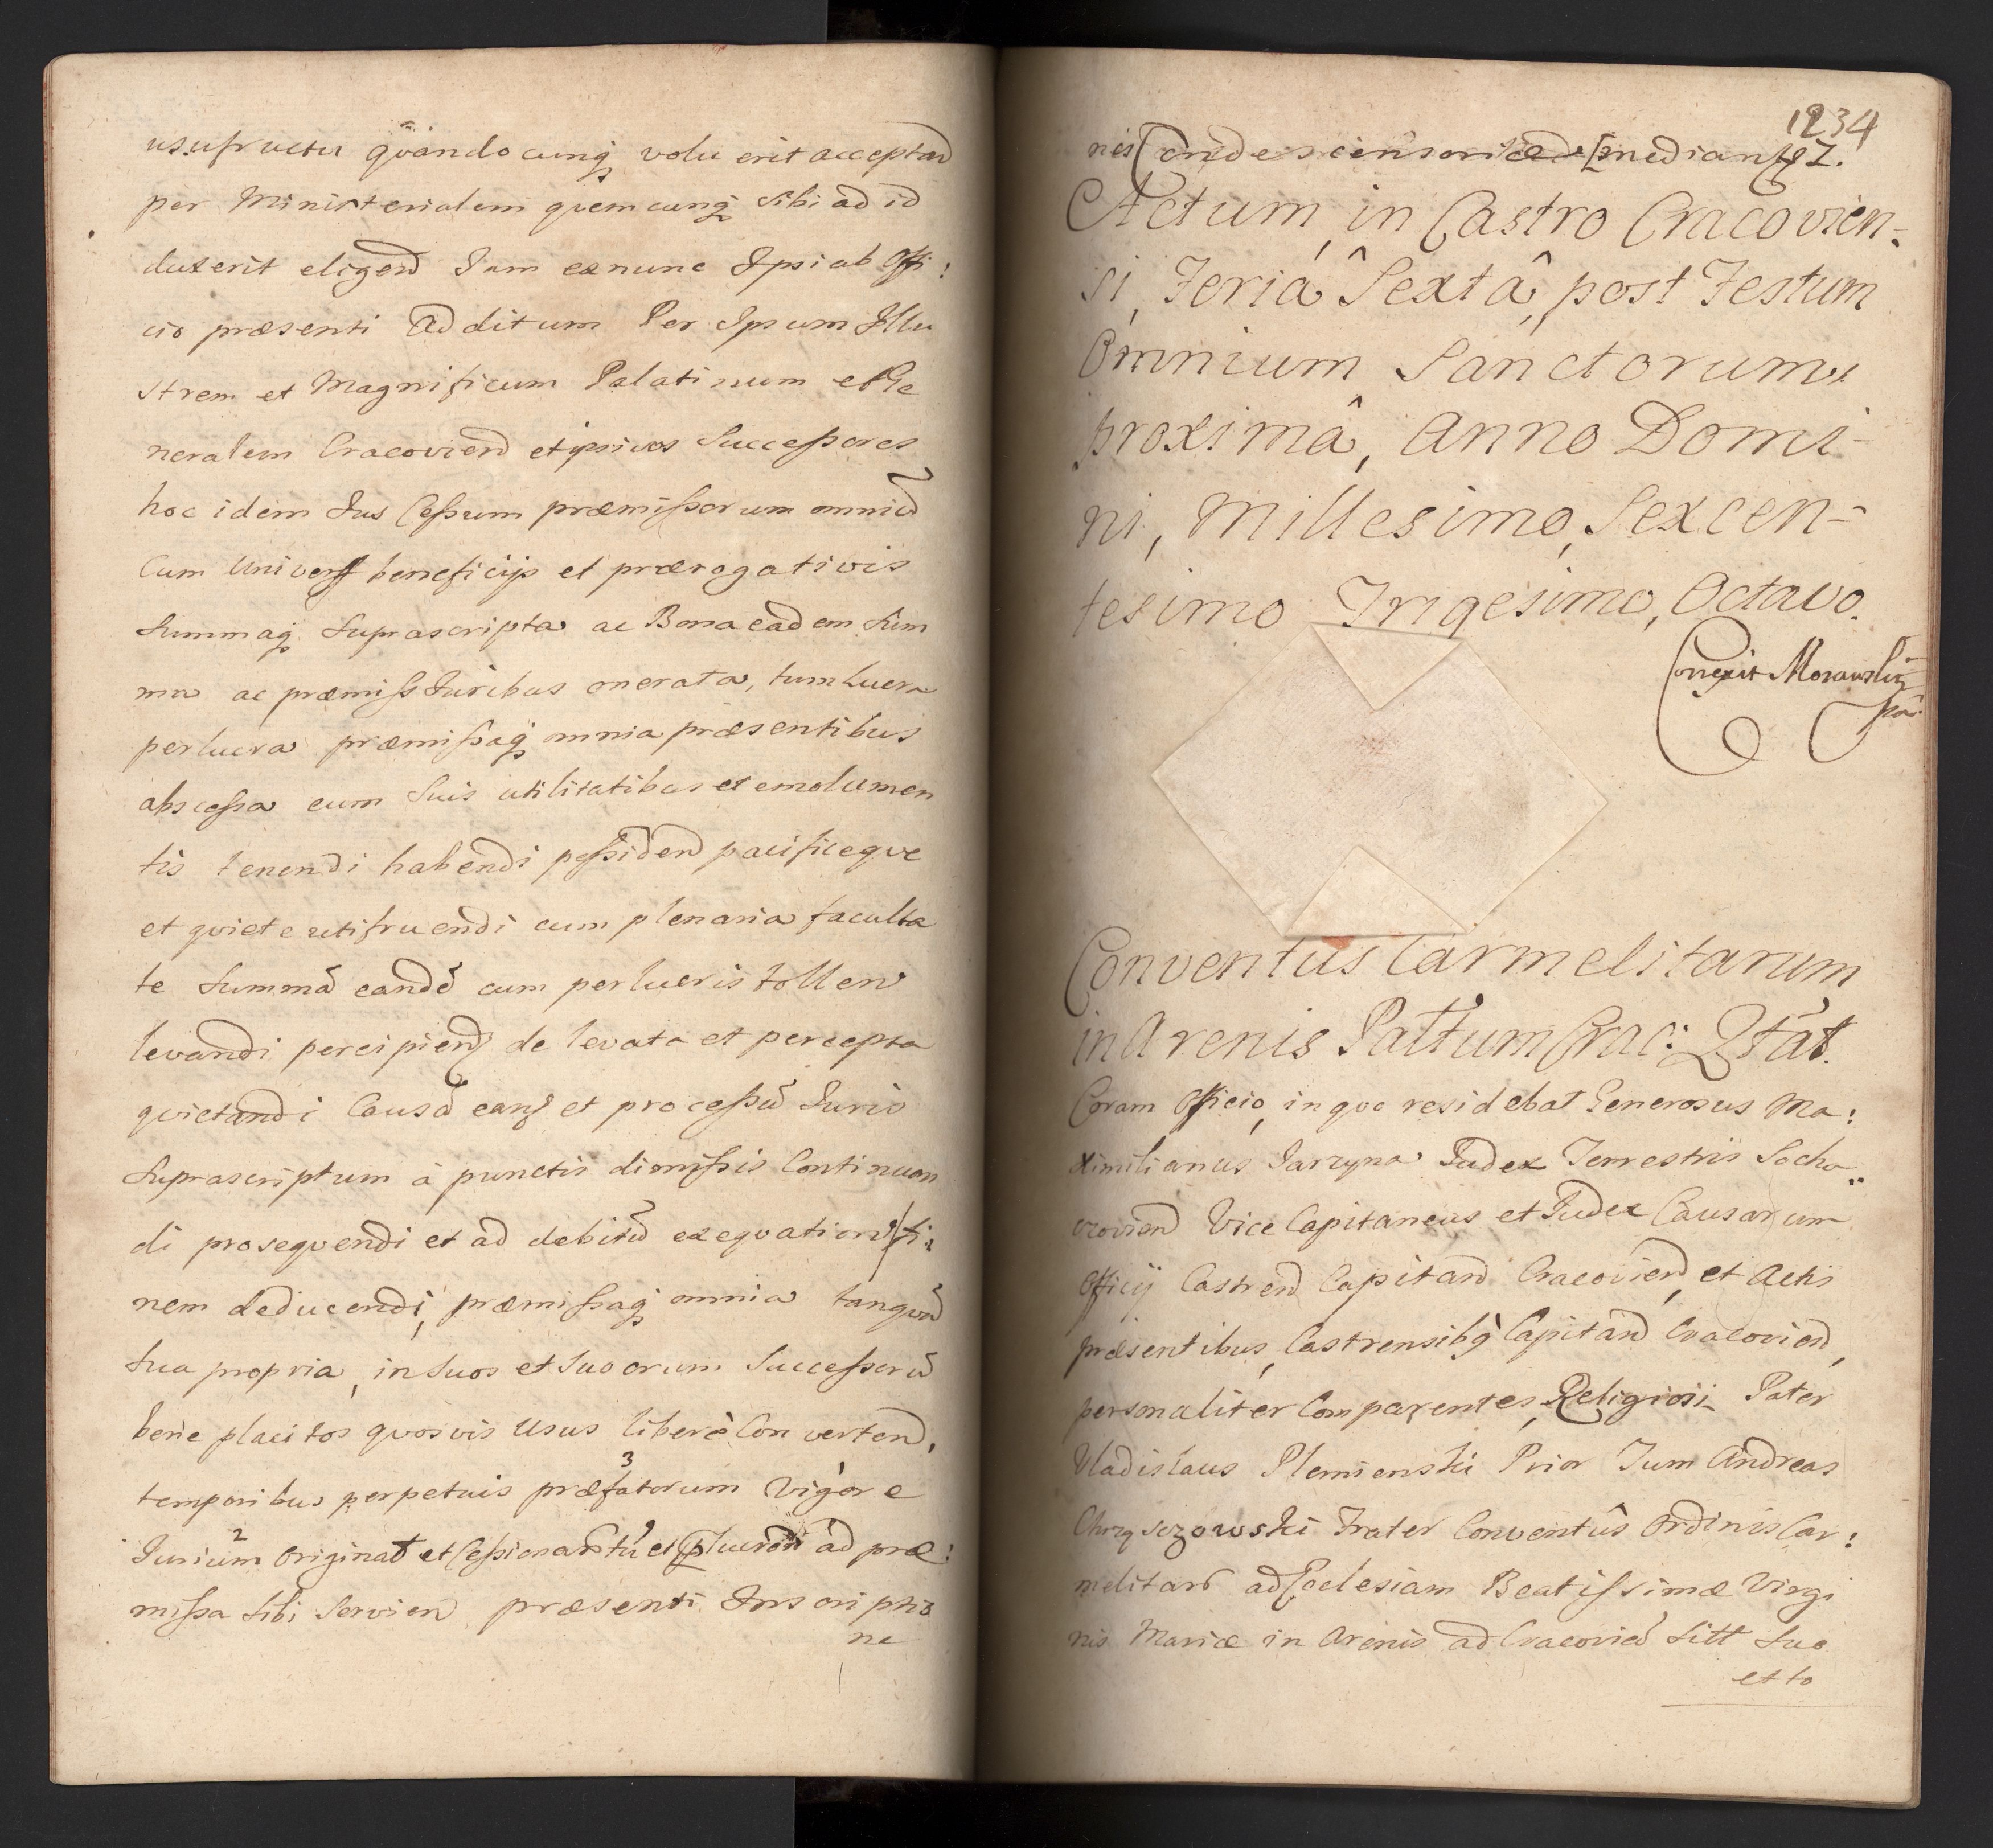 usufructu quandocunq voluerit acceptand
per Ministerialem quemcunq sibi ad id
duxerit eligend Iam exnunc Ipsi ab Offi:
cio præsenti Additum Per Ipsum Illu
strem et Magnificum Palatinum et Ge
neralem Cracoviend et ipsius Successores
hoc idem Ius Cessum præmissorum omniũ
Cum Univers beneficijs et prærogativis
Summaq Suprascripta ac Bona eadem Sum
ma ac præmiss Iuribus onerata, tum lucra
perlucra præmissaq omnia præsentibus
abscessa cum Suis utilitatibus et emolumen
tis tenendi habendi possidend pacificeque
et quiete utifruendi cum plenaria faculta
te Summã eandẽ cum perlucris tollen
levandi percipiend de levata et percepta
quietandi Causã eand et processũ Iuris
Suprascriptum à punctis dimissis Continuan
di prosequendi et ad debitũ exequationis fi:
nem deducendi, præmissaq omnia tanquã
Sua propria, in Suos et Suorum Successorũ
bene placitos quosvis Usus liberè Convertend,
temporibus perpetuis præfatorum 3 Vigore
Iurium 2 Originat et Cessionar ad præ:
missa Sibi Servien præsenti Inscriptio
ne
1234
nis Condescensoria mediante.
Actum in Castro Cracovien-
si, Feriâ Sextâ, post Festum
Omnium Sanctorum,
proximâ, Anno Domi-
ni, Millesimo, Sexcen-
tesimo Trigesimo, Octavo.
Correxit Morawski
Conventus Carmelitarum
in Arenis Patrum Crac: Qtat.
Coram Officio, in quo residebat Generosus Ma:
ximilianus Iarzyna Iudex Terrestris Socha
czoviend Vice Capitaneus et Iudex Causarum
Officij Castrend Capitand Cracoviend, et Actis
præsentibus, Castrensibq Capitand Cracoviend,
personaliter Comparentes, Religiosi Pater
Vladislaus Plemienski Prior Tum Andreas
Chrzysczowski Frater Conventûs Ordinis Car:
melitard ad Ecclesiam Beatissimæ Virgi
nis Mariæ in Arenis ad Cracoviã Sitt Suo
et to